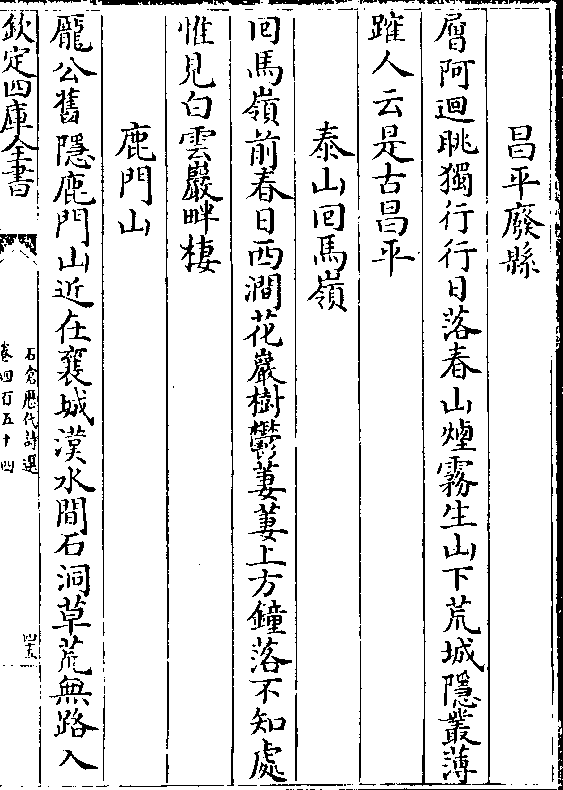 昌平廢縣
層阿迴眺獨行行日落春山煙霧生山下荒城隱叢薄
蹤人云是古昌平
泰山回馬嶺
回馬嶺前春日西澗花巖樹鬱萋萋上方鐘落不知處
惟見白雲巖畔棲
鹿門山
龐公舊隱鹿門山近在襄城漢水間石洞草荒無路入
欽定四庫全書
石倉歷代詩選
卷四百五十四
四五